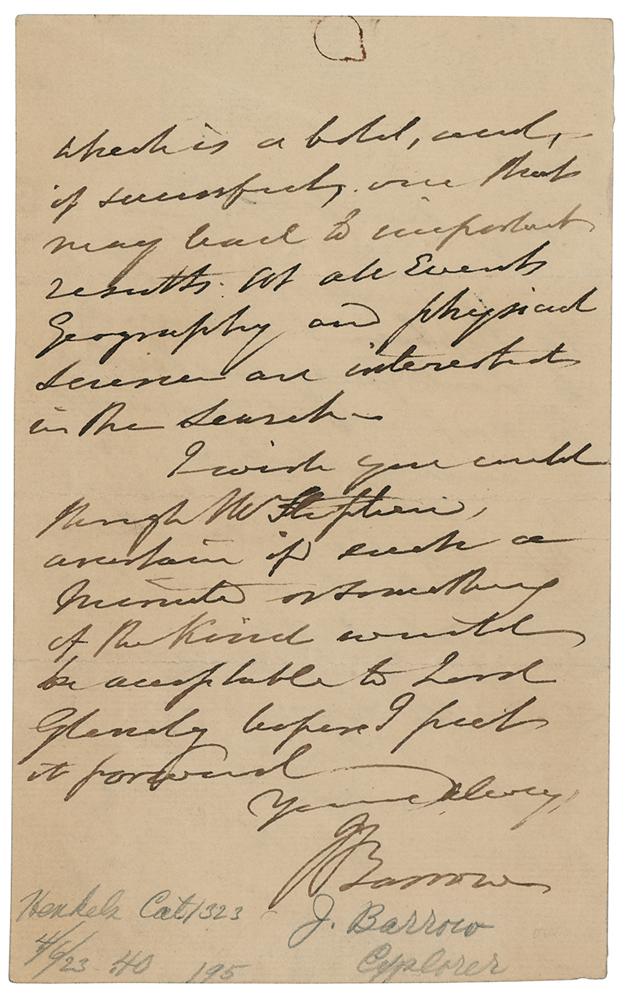 which is a bold, and,
if successful, one that
may lead to important
results. At all Events
Geography and physical
Science are interested
in the Search.
I wish you could
through Mr Stephen,
ascertain if such a
Minute or something
of the Kind would
be acceptable to Lord
Glenelg before I put
it forward
Yours
J Barrow
Henkels Cat 1323
4/6/23 .40 195
J. Barrow
Explorer